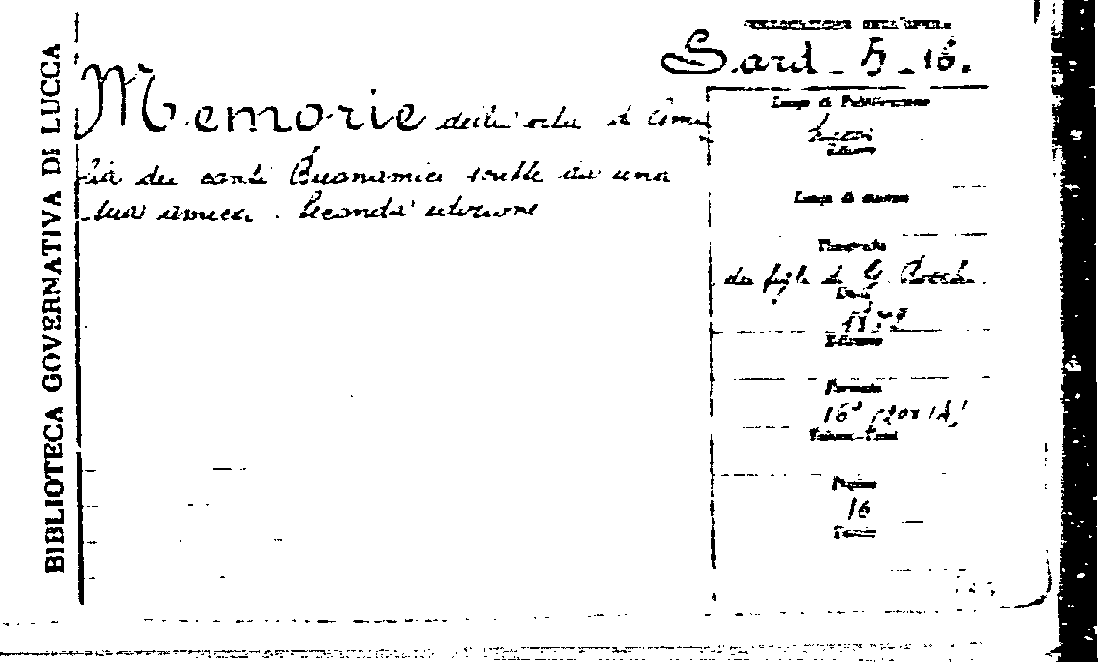 BIBLIOTECA GOVERNATIVA DI LUCCA
COLLOCAZIONE DELL'OPERA
Sard_5_16.
Memorie della vita di
dei conti Buonamici scritte da una
sua amica. Seconda edizione
Luogo di Pubblicazione
Lucca
Edizione
Luogo di stampa
Tipografia
dei figli di G. Rocchi
Data
Edizione
Formato
16°
Volumi-Tomi
Pagine
16
Tavole